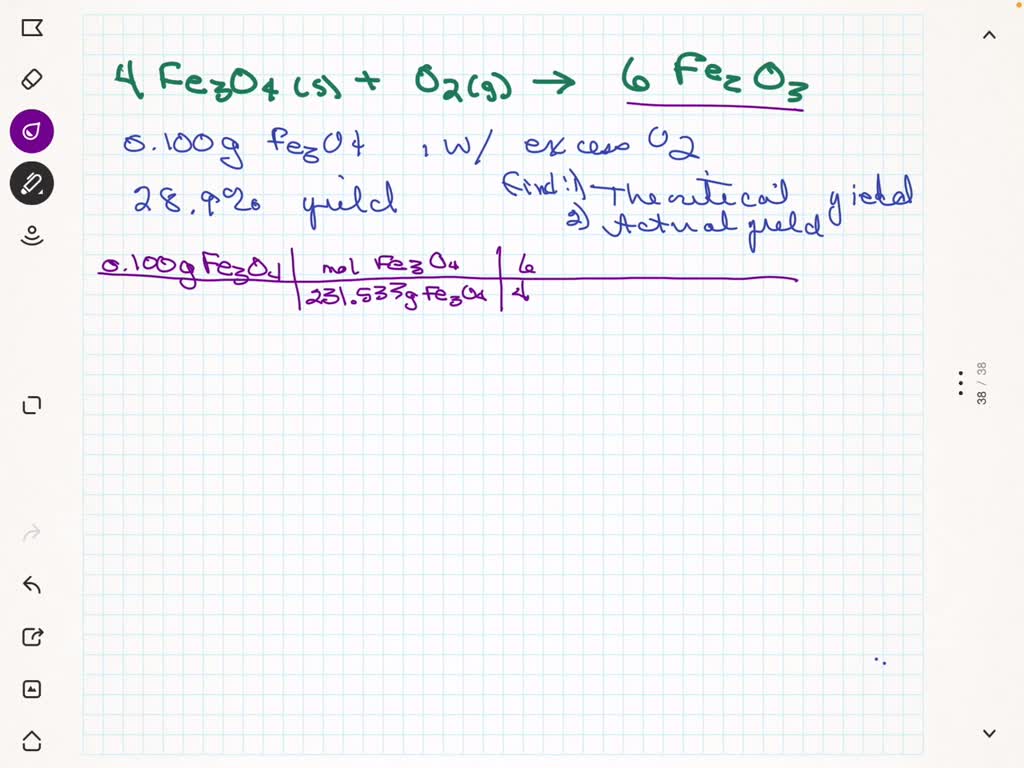 4 Fe3O4 (s) + O2(g) → 6 Fe2O3
0.100g Fe3O4 , w/ excess O2
28.9% yield
Find: 1) Theoritical yield
2) Actual yield
0.100g Fe3O4 | mol Fe3O4 | 6
231.533g Fe3O4 | 4
38 / 38